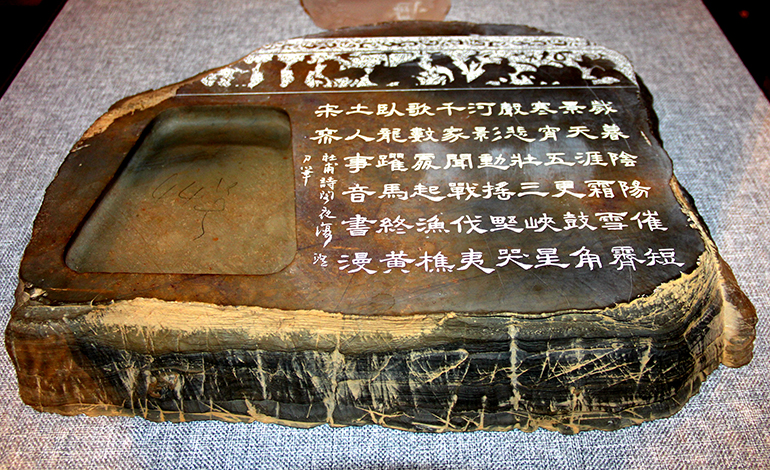 歲暮陰陽催短
景天涯霜雪霽
寒宵五更鼓角
聲悲壯三峽星
河影動搖埜哭
千家聞戰伐夷
歌數處起漁樵
臥龍躍馬終黃
土人事音書漫
寂寥
杜甫詩閣夜